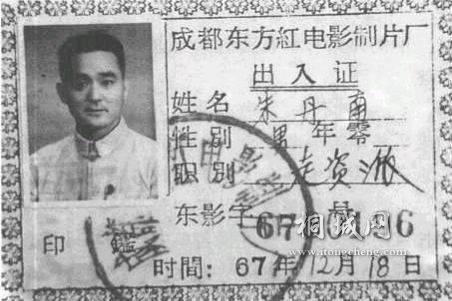 成都东方红电影制片厂
出入证
姓名 朱丹南
性别 男 年零
职别 走资派
东影字 67 号
印鑑
时間: 67年12月18日
桐城网
www.itongcheng.com